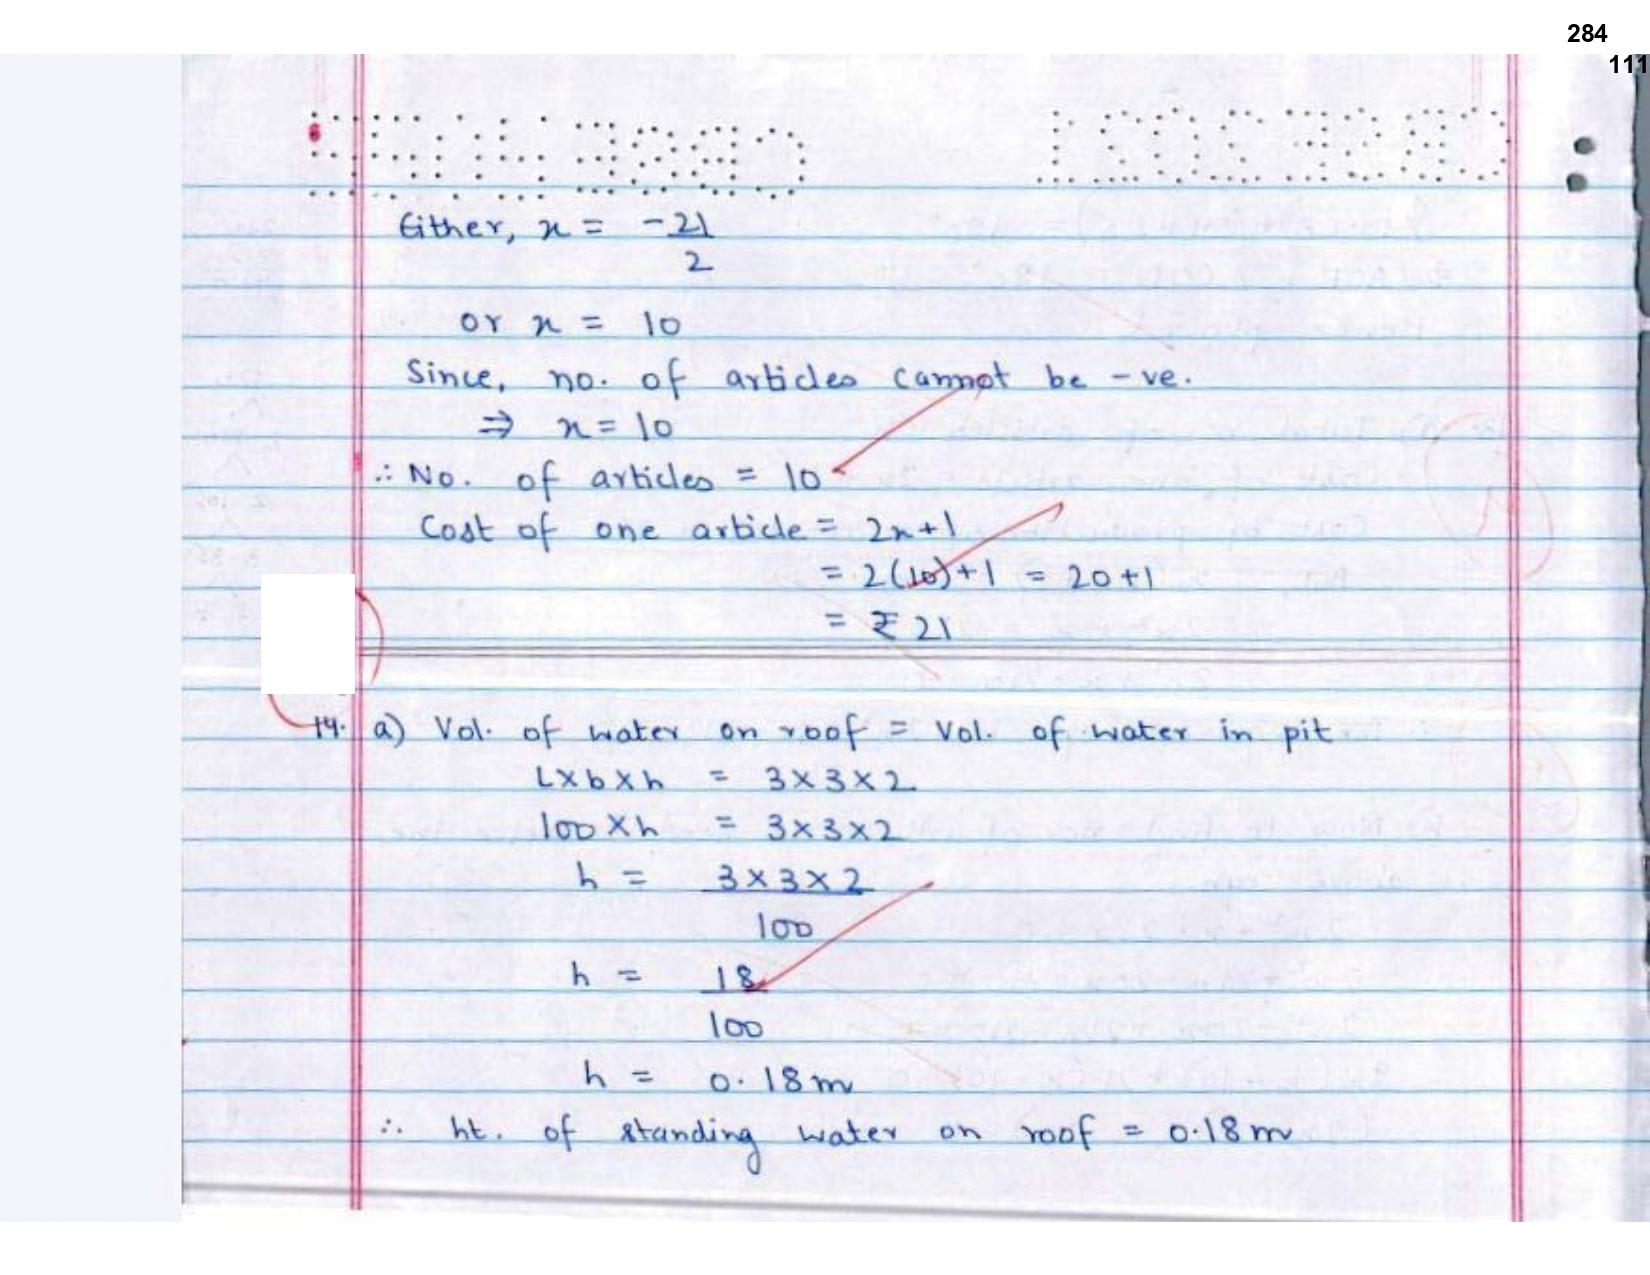 284
111
Either, x = -21/2
or x = 10
Since, no. of articles cannot be -ve.
⇒ x = 10
∴ No. of articles = 10
Cost of one article = 2x+1
= 2(10)+1 = 20+1
= ₹ 21
14. a) Vol. of water on roof = Vol. of water in pit
L×b×h = 3×3×2
100×h = 3×3×2
h = 3×3×2/100
h = 18/100
h = 0.18m
∴ ht. of standing water on roof = 0.18m